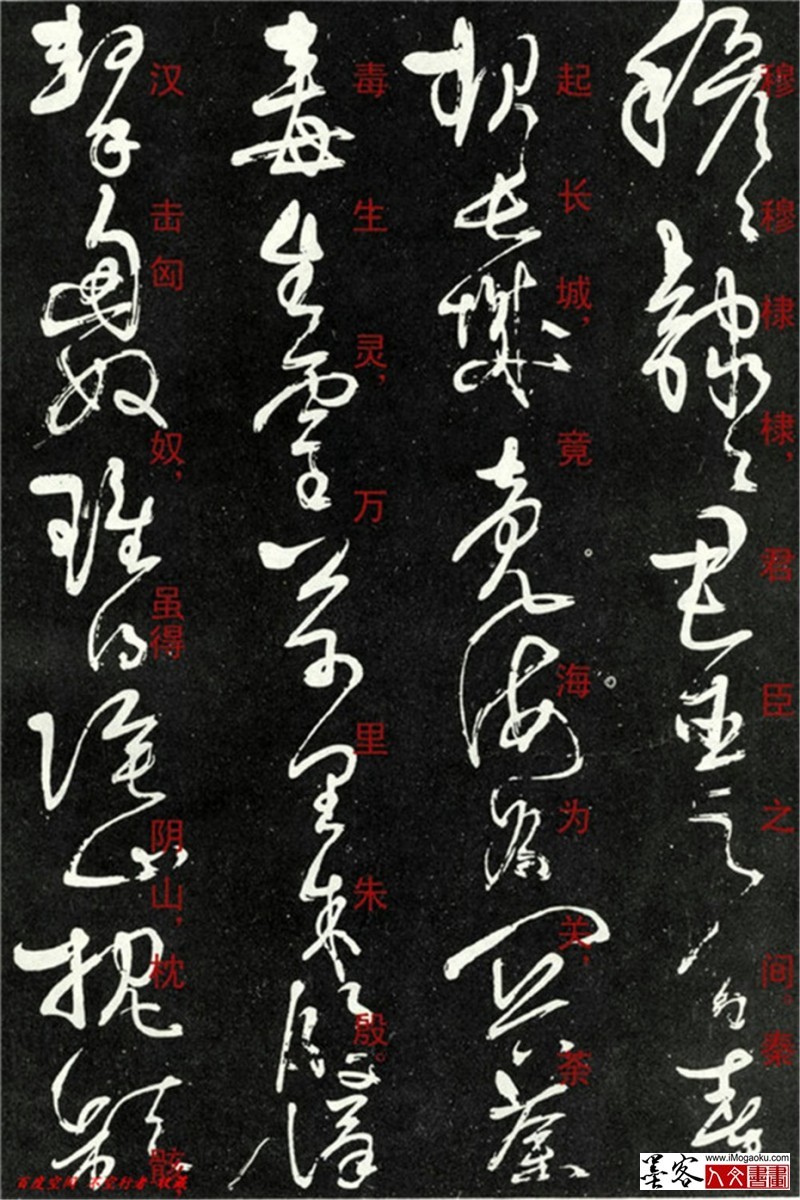 穆穆棣棣,君臣之间。秦
起长城,竟海为关,荼
毒生灵,万里朱殷。
汉击匈奴,虽得阴山,枕骸
百度空间
墨客
www.iMogaoku.com
人文書畫